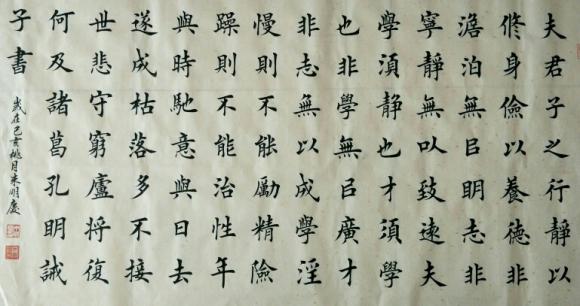 夫君子之行靜以
修身儉以養德非
澹泊無㠯明志非
寧靜無㕥致遠夫
學須静也才須學
也非學無㠯廣才
非志無以成學淫
慢則不能勵精險
躁則不能治性年
與時馳意與日去
遂成枯落多不接
世悲守窮廬將復
何及諸葛孔明誡
子書
歲在己亥桃月明慶